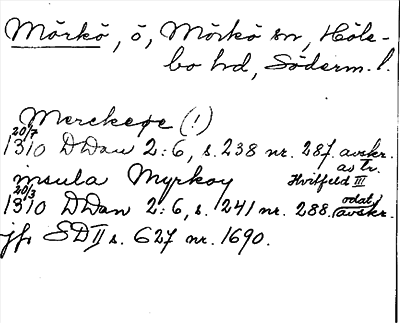 Mörkö, ö, Mörkö sn, Höle-
bo hd, Söderm. l.
Merckeøe (!)
20/7
1310 DDan 2:6, s. 238 nr. 287. avskr.
as tr.
msula Myrkoy Hvitfeld III
20/3
1310 DDan 2:6, s. 241 nr. 288. odat. avskr.
jfr SD II s. 627 nr. 1690.